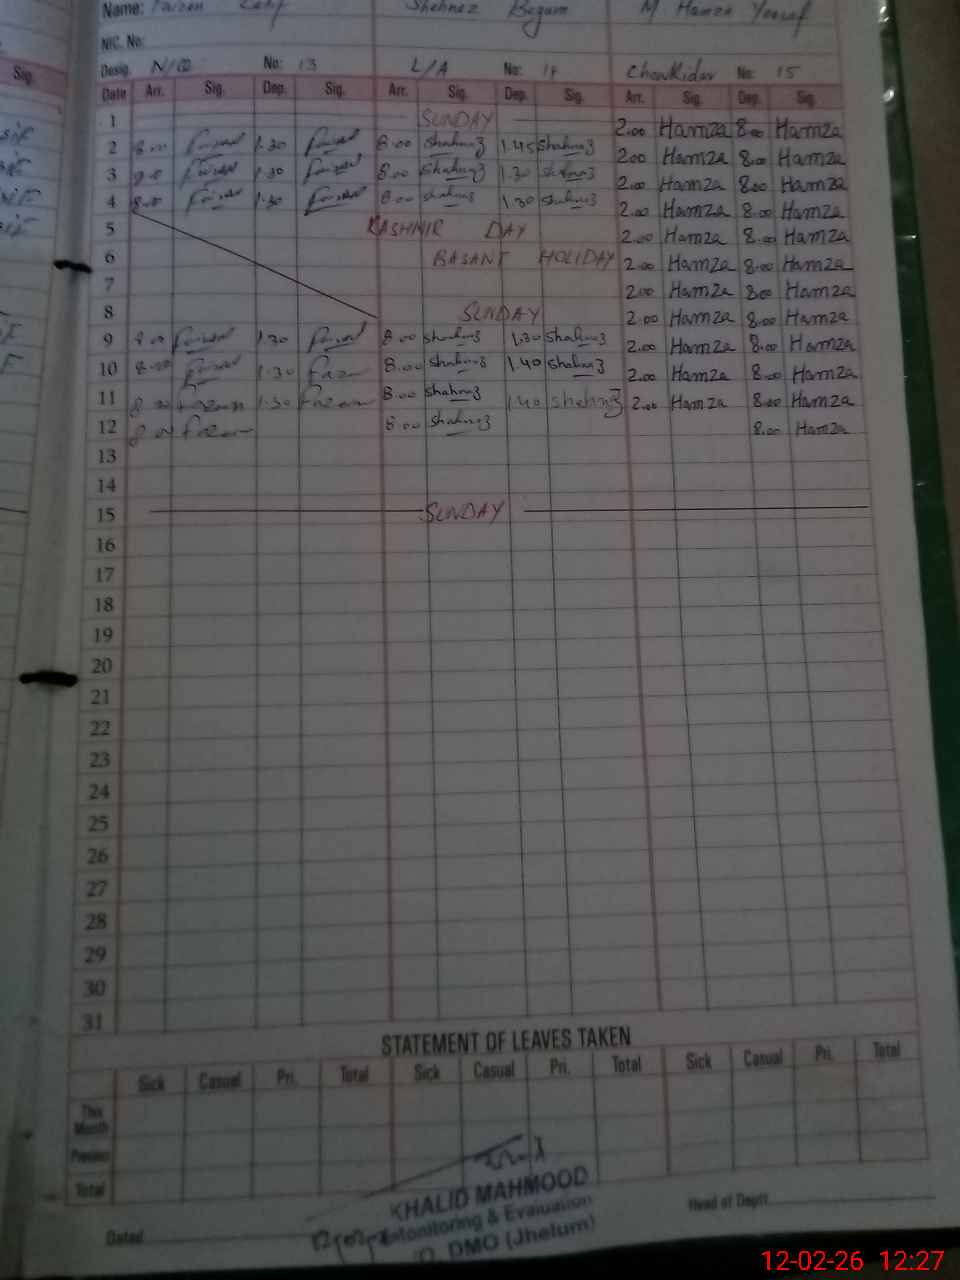 Name: Faizan Latif Shehnaz Begum M Hamza Yousaf
NIC. No:
Desig. N/Q No: 13 L/A No: 14 Chowkidar No: 15
Sig. Date Arr. Sig. Dep. Sig. Arr. Sig. Dep. Sig. Arr. Sig. Dep. Sig.
1 SUNDAY 2.00 Hamza 8.00 Hamza
2 8.00 1.30 8.00 Shahnaz 1.45 Shahnaz 2.00 Hamza 8.00 Hamza
3 1.30 8.00 Shahnaz 1.30 Shahnaz 2.00 Hamza 8.00 Hamza
4 8.00 1.30 8.00 Shahnaz 1.30 Shahnaz 2.00 Hamza 8.00 Hamza
5 KASHMIR DAY 2.00 Hamza 8.00 Hamza
6 BASANT HOLIDAY 2.00 Hamza 8.00 Hamza
7 2.00 Hamza 8.00 Hamza
8 SUNDAY 2.00 Hamza 8.00 Hamza
9 8.00 1.30 8.00 Shahnaz 1.30 Shahnaz 2.00 Hamza 8.00 Hamza
10 8.00 1.30 8.00 Shahnaz 1.40 Shahnaz 2.00 Hamza 8.00 Hamza
11 8.00 1.30 8.00 Shahnaz 1.40 Shahnaz 2.00 Hamza 8.00 Hamza
12 8.00 8.00 Shahnaz 8.00 Hamza
13
14
15 SUNDAY
16
17
18
19
20
21
22
23
24
25
26
27
28
29
30
31
STATEMENT OF LEAVES TAKEN
Sick Casual Pri. Total Sick Casual Pri. Total Sick Casual Pri. Total
This Month
Previous
Total
KHALID MAHMOOD
Monitoring & Evaluation
O, DMO (Jhelum)
Dated Head of Deptt.
12-02-26 12:27